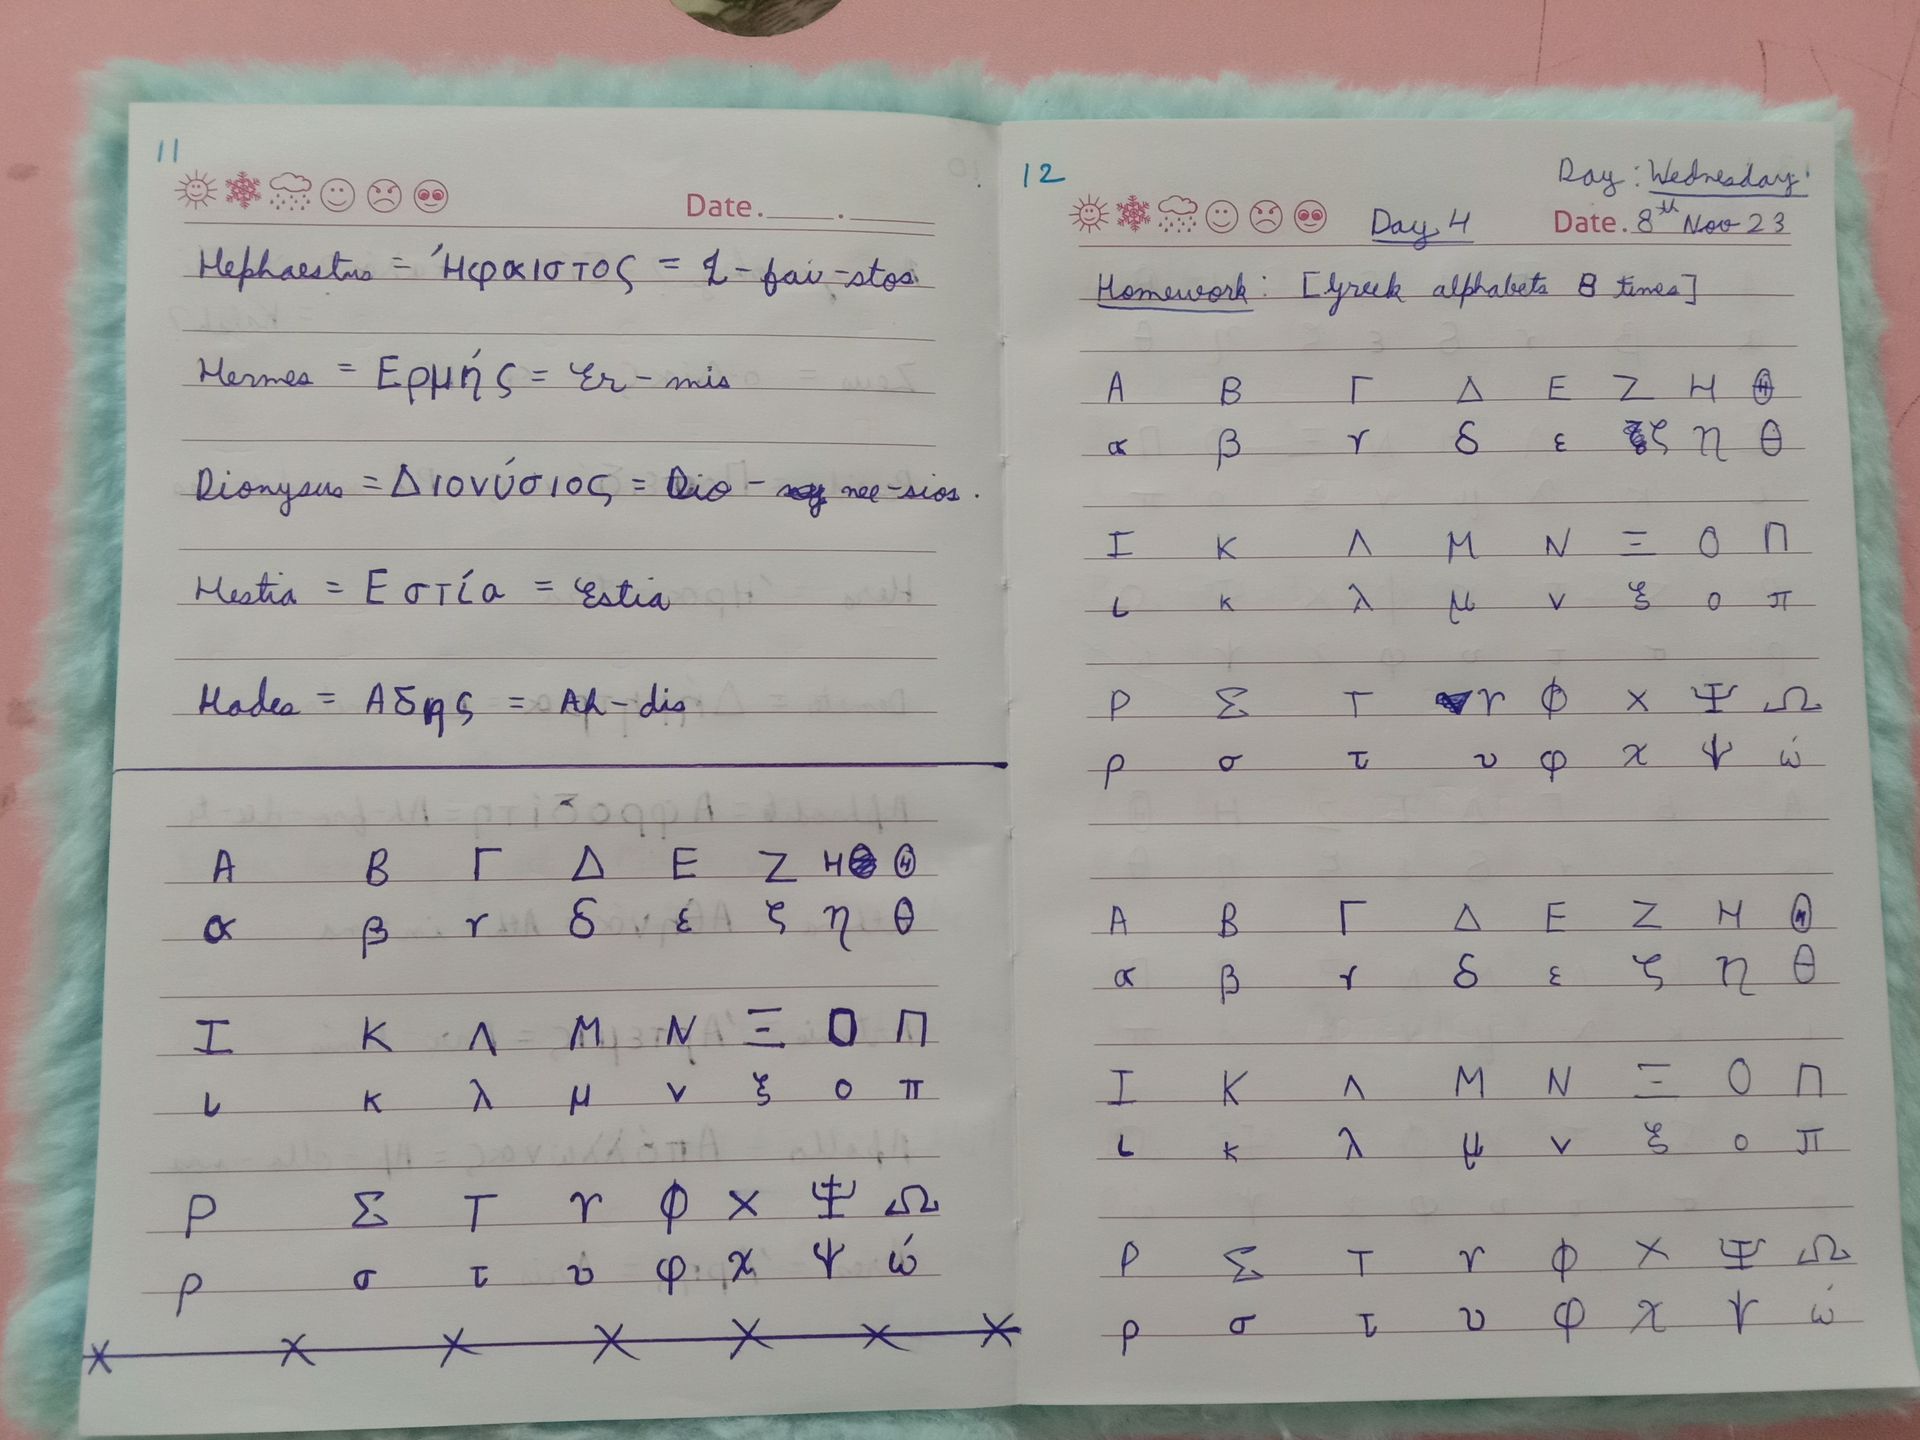 11
Date.
Hephaestus = Ήφαιστος = I-fai-stos
Hermes = Ερμής = Er-mis
Dionysus = Διονύσιος = Dio - nee-sios.
Hestia = Εστία = Estia
Hades = Αδης = Ah-dis
Α Β Γ Δ Ε Ζ Η Θ
α β γ δ ε ζ η θ
Ι Κ Λ Μ Ν Ξ Ο Π
ι κ λ μ ν ξ ο π
Ρ Σ Τ Υ Φ Χ Ψ Ω
ρ σ τ υ φ χ ψ ώ
12
Day : Wednesday
Day 4 Date. 8th Nov 23
Homework : [Greek alphabets 8 times]
Α Β Γ Δ Ε Ζ Η Θ
α β γ δ ε ζ η θ
Ι Κ Λ Μ Ν Ξ Ο Π
ι κ λ μ ν ξ ο π
Ρ Σ Τ Υ Φ Χ Ψ Ω
ρ σ τ υ φ χ ψ ώ
Α Β Γ Δ Ε Ζ Η Θ
α β γ δ ε ζ η θ
Ι Κ Λ Μ Ν Ξ Ο Π
ι κ λ μ ν ξ ο π
Ρ Σ Τ Υ Φ Χ Ψ Ω
ρ σ τ υ φ χ ψ ώ